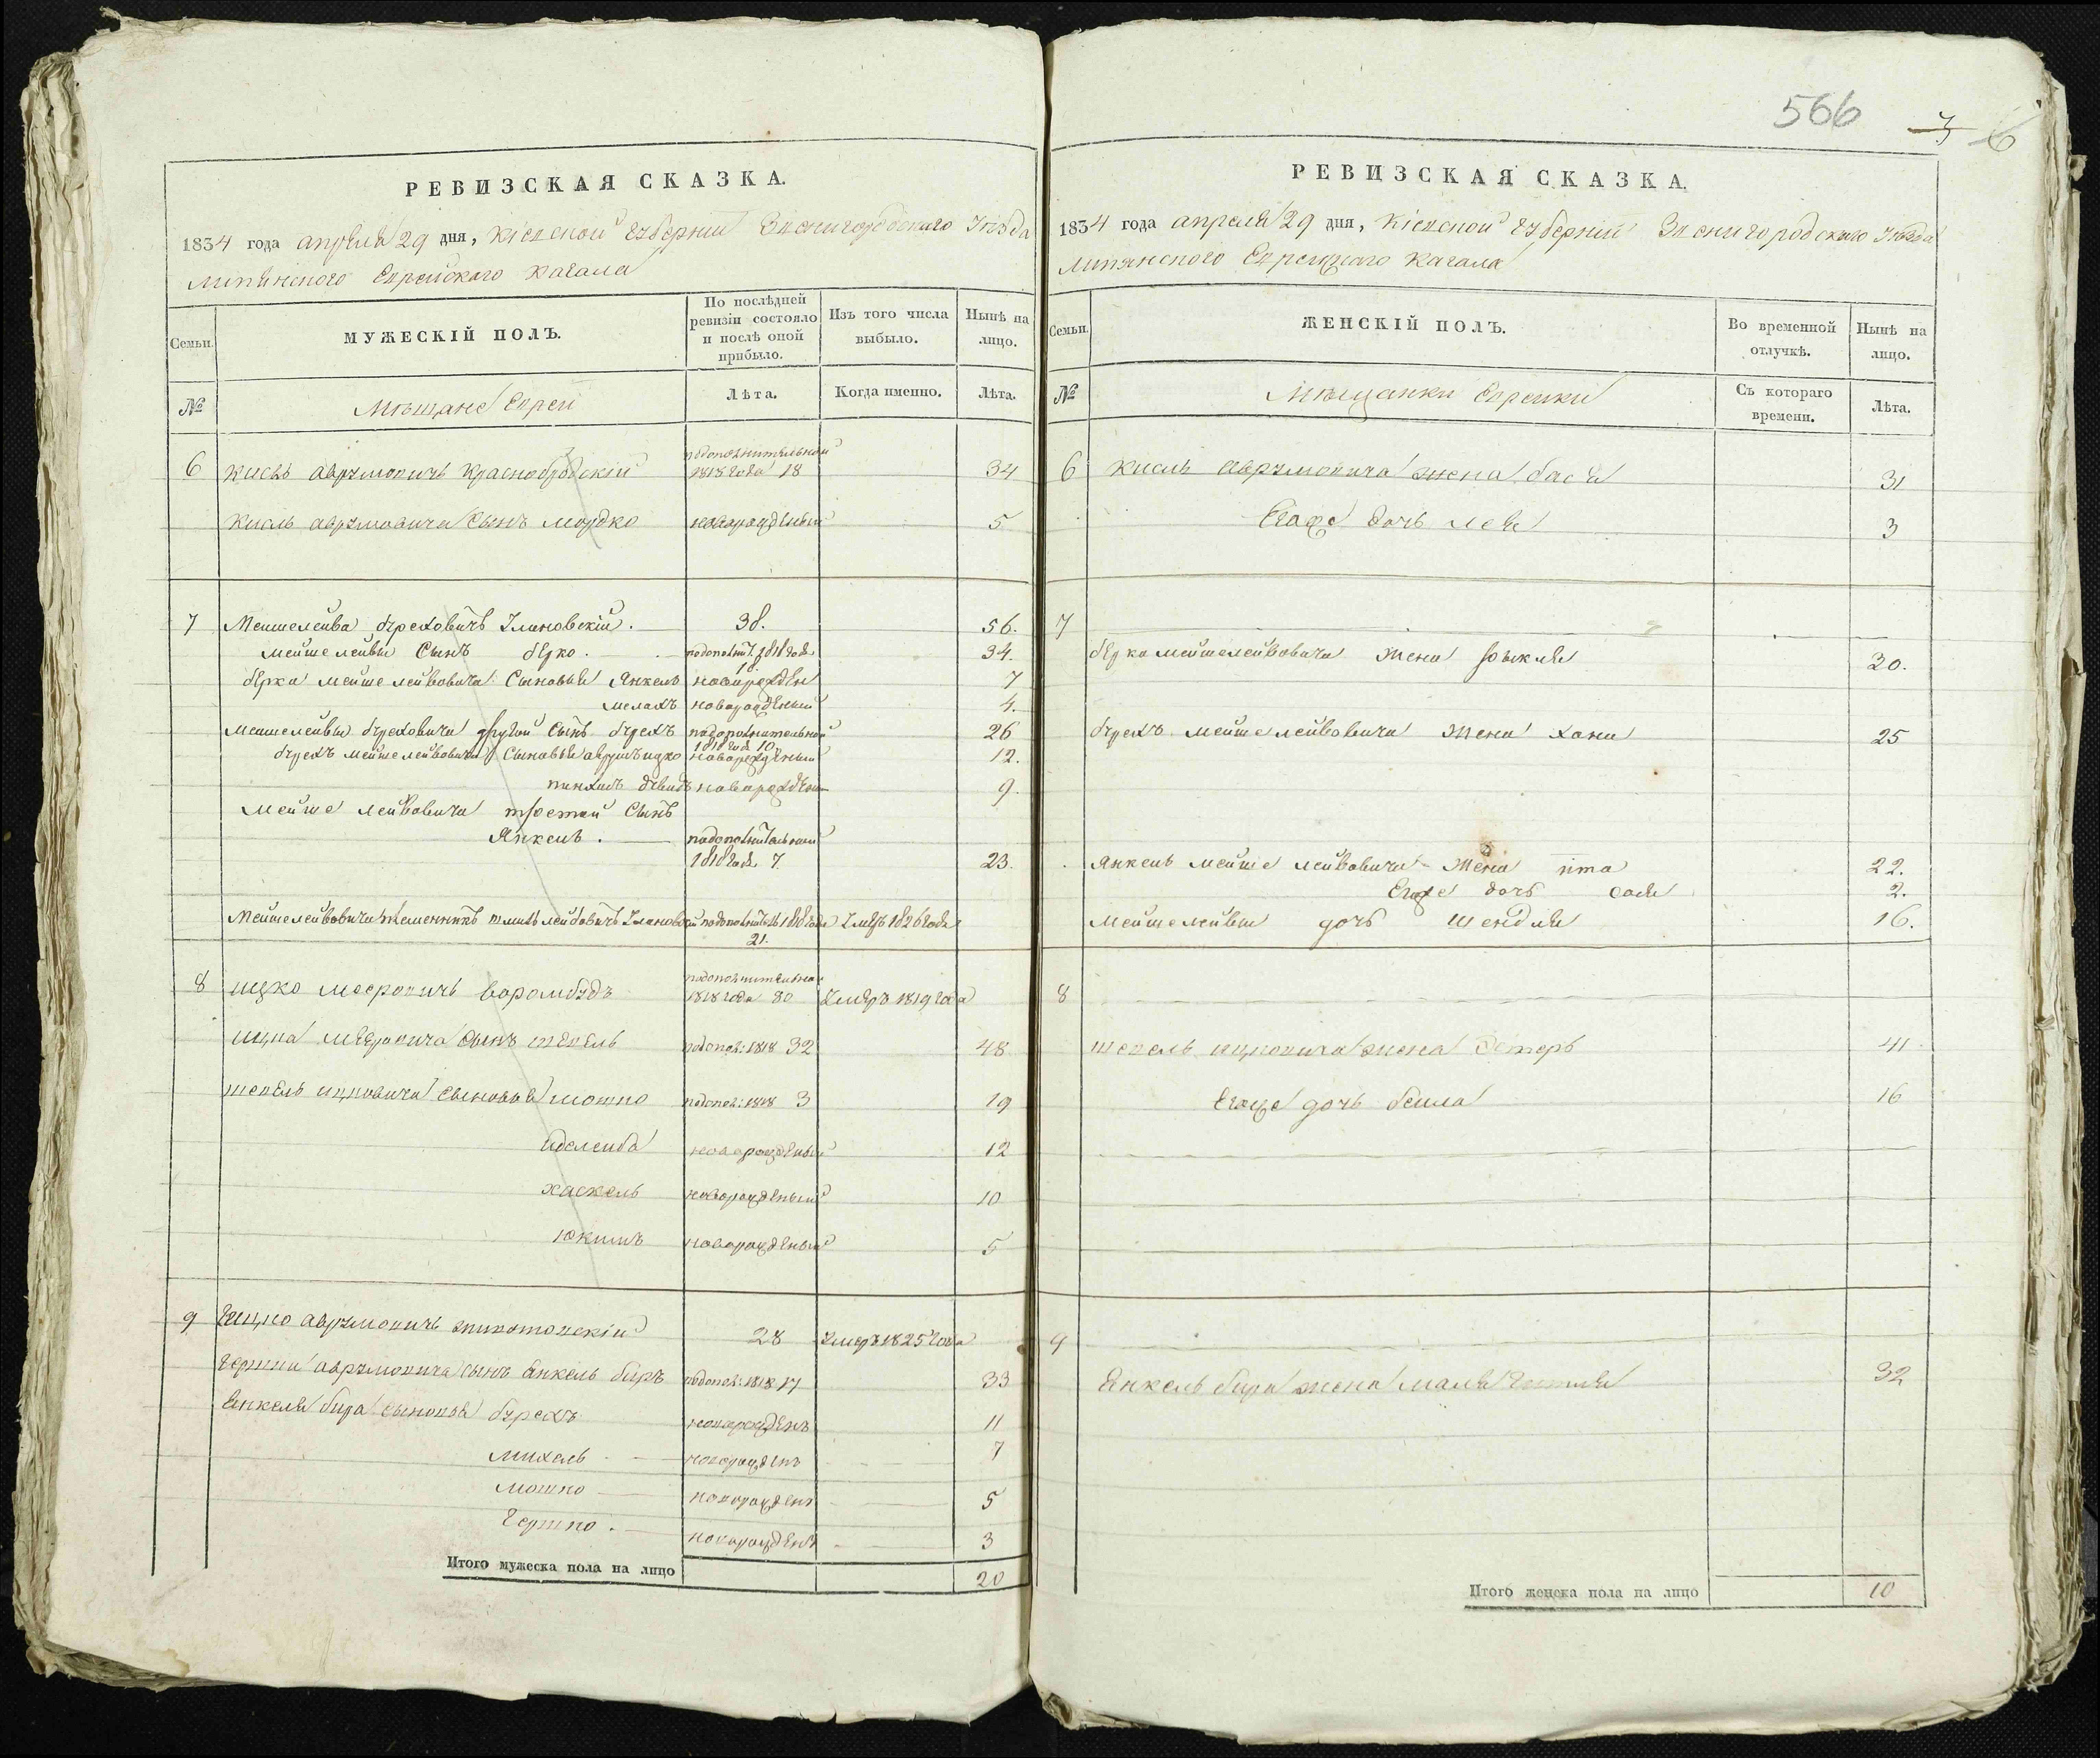 РЕВИЗСКАЯ СКАЗКА.
1834 года апреля 29 дня, Кіевской Губерніи Звенигородского Уѣзда
Липянского Еврейского Кагала
Семьи.
МУЖЕСКІЙ ПОЛЪ.
По послѣдней ревизіи состояло и послѣ оной прибыло.
Изъ того числа выбыло.
Нынѣ на лицо.
№
Мѣщане Евреи
Лѣта.
Когда именно.
Лѣта.
6 Кисль Аврумовичъ 1818 года 18 34
Кисль Аврумовича Сынъ Мордко новорожденный 5
7 Мошелейба Бруховичъ Улановскій. 38. 56.
Мейшелейбы Сынъ Берко. 1818 года 18 34.
Берка Мейшелейбовича Сыновья Янкель новорожден 7
Мелахъ новорожденный 4.
Мошелейбы Бруховича другой Сынъ Брухъ по дополнительной 1818 года 10 26
Брухъ Мейшелейбовича Сыновья ицко новорожденный 12.
пинхасъ новорожден 9.
Мейше Лейбовича третій Сынъ
Янкель. по дополнительной
1818 года 7 23.
Мейшелейбовича племенникъ Лейбовичъ Улановскій 1818 года Умеръ 1826 года
21.
8 ицко Мееровичъ по дополнительной 1818 года 80 Умеръ 1819 года
ицка Мееровича Сынъ шепель по допол: 1818 32 48
шепель ицковича Сыновья мошко по допол: 1818 3 19
иделейба новорожденный 12
хаскель новорожденный 10
юкимъ новорожденный 5
9 Аврумовичъ 28 Умеръ 1825 года
Аврумовича Сынъ Янкель беръ по допол: 1818 17 33
Янкеля бера сыновья брухъ новорожденъ 11
михель новорожденъ 7
мошко новорожденъ 5
Гершко. новорожденъ 3
Итого мужеска пола на лицо 20
566
6
РЕВИЗСКАЯ СКАЗКА.
1834 года апреля 29 дня, Кіевской Губерніи Звенигородского Уѣзда
Липянского Еврейского Кагала
Семьи.
ЖЕНСКІЙ ПОЛЪ.
Во временной отлучкѣ.
Нынѣ на лицо.
№
Мѣщанки Еврейки
Съ котораго времени.
Лѣта.
6 Кисль Аврумовича жена бася 31
Егоже дочь лея 3
7
Берка Мейшелейбовича Жена 30.
Брухъ Мейшелейбовича Жена Хана 25
Янкель Мейше Лейбовича Жена ита 22.
Егоже дочь 2.
Мейшелейбы дочь шендля 16.
8
шепель ицковича жена Эстеръ 41
Егоже дочь бейла 16
9
Янкель бера жена маля 32
Итого женска пола на лицо 10